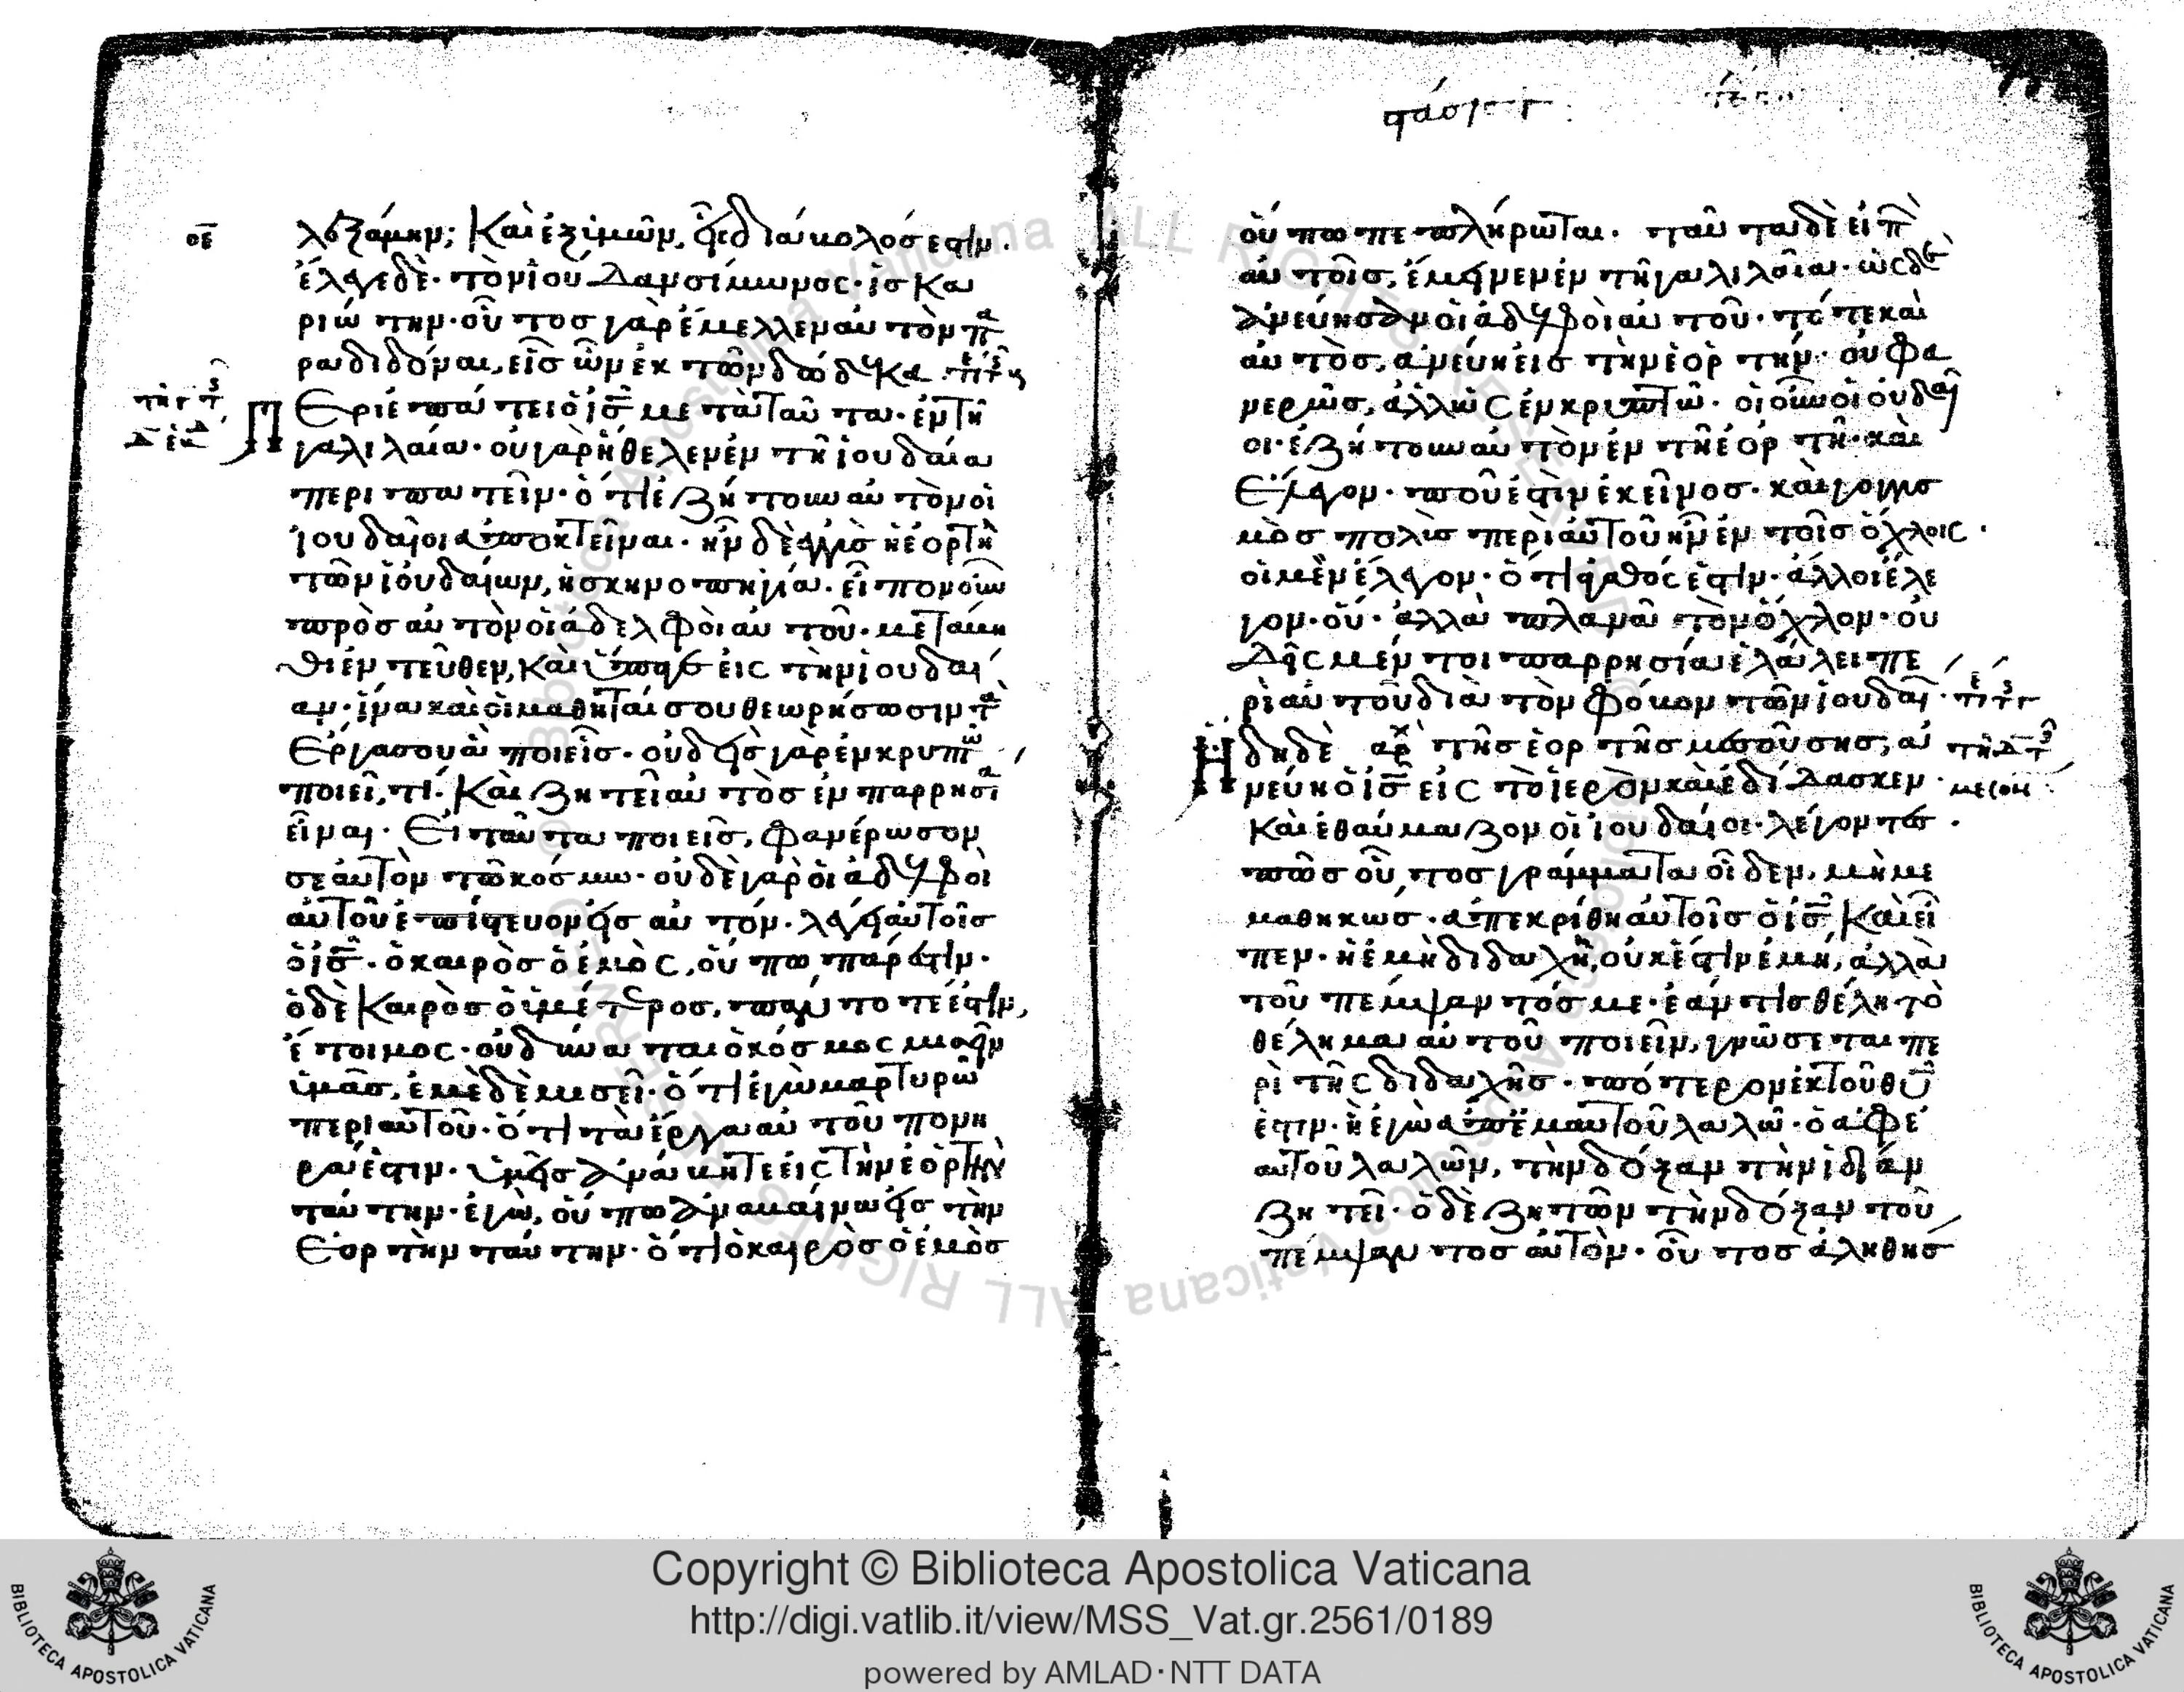 οε
λεξάμην; Καὶ ἐξ ὑμῶν, εἷς διάβολός ἐστιν.
ἔλεγε δὲ· τὸν ἰούδαν σίμωνος· ἰσκα
ριώτην· οὗτος γὰρ ἔμελλεν αὐτὸν πα
ραδιδόναι, εἷς ὢν ἐκ τῶν δώδεκα.
Περιεπάτει ὁ ις μετὰ ταῦτα· ἐν τῆ
γαλιλαία· οὐ γὰρ ἤθελεν ἐν τῆ ἰουδαία
περιπατεῖν· ὅτι ἐζήτουν αὐτὸν οἱ
ἰουδαῖοι ἀποκτεῖναι· ἦν δὲ ἐγγὺς ἡ ἑορτὴ
τῶν ἰουδαίων, ἡ σκηνοπηγία. εἶπον οὖν
πρὸς αὐτὸν οἱ ἀδελφοὶ αὐτοῦ· μετάβη
θι ἐντεῦθεν, καὶ ὕπαγε εἰς τὴν ἰουδαί
αν· ἵνα καὶ οἱ μαθηταί σου θεωρήσωσιν τὰ
ἔργα σου ἃ ποιεῖς· οὐδεὶς γὰρ ἐν κρυπτῶ
ποιεῖ, τί. Καὶ ζητεῖ αὐτὸς ἐν παρρησία
εἶναι. Εἰ ταῦτα ποιεῖς, φανέρωσον
σεαυτὸν τῶ κόσμω· οὐδὲ γὰρ οἱ ἀδελφοὶ
αὐτοῦ ἐπίστευον εἰς αὐτόν. λέγει αὐτοῖς
ὁ ις· ὁ καιρὸς ὁ ἐμὸς, οὔπω πάρεστιν·
ὁ δὲ Καιρὸς ὁ ὑμέτερος, πάντοτέ ἐστιν,
ἕτοιμος· οὐ δύναται ὁ κόσμος μισεῖν
ὑμᾶς, ἐμὲ δὲ μισεῖ· ὅτι ἐγὼ μαρτυρῶ
περὶ αὐτοῦ· ὅτι τὰ ἔργα αὐτοῦ πονη
ρά ἐστιν. ὑμεῖς ἀνάβητε εἰς τὴν ἑορτὴν
ταύτην· ἐγὼ, οὔπω ἀναβαίνω εἰς τὴν
Ἑορτὴν ταύτην· ὅτι ὁ καιρὸς ὁ ἐμὸς
οὔπω πεπλήρωται. ταῦτα δὲ εἰπὼν
αὐτοῖς, ἔμεινεν ἐν τῆ γαλιλαία· ὡς δὲ
ἀνέβησαν οἱ ἀδελφοὶ αὐτοῦ· τότε καὶ
αὐτὸς, ἀνέβη εἰς τὴν ἑορτήν· οὐ φα
νερῶς, ἀλλ' ὡς ἐν κρυπτῶ. οἱ οὖν ἰουδαῖ
οι· ἐζήτουν αὐτὸν ἐν τῆ ἑορτῆ· καὶ
Ἔλεγον· ποῦ ἐστὶν ἐκεῖνος· καὶ γογγυσ
μὸς πολὺς περὶ αὐτοῦ ἦν ἐν τοῖς ὄχλοις·
οἱ μὲν ἔλεγον· ὅτι ἀγαθός ἐστιν· ἄλλοι ἔλε
γον· οὔ· ἀλλὰ πλανᾶ τὸν ὄχλον· οὐ
δεὶς μέντοι παρρησία ἐλάλει πε
ρὶ αὐτοῦ διὰ τὸν φόβον τῶν ἰουδαί.
Ἤδη δὲ τῆς ἑορτῆς μεσούσης, ἀ
νέβη ὁ ις εἰς τὸ ἱερὸν καὶ ἐδίδασκεν·
Καὶ ἐθαύμαζον οἱ ἰουδαῖοι· λέγοντες.
πῶς οὗτος γράμματα οἶδεν, μὴ με
μαθηκώς. ἀπεκρίθη αὐτοῖς ὁ ις, Καὶ εἶ
πεν· ἡ ἐμὴ διδαχὴ, οὐκ ἔστιν ἐμὴ, ἀλλὰ
τοῦ πέμψαντός με· ἐάν τις θέλη τὸ
θέλημα αὐτοῦ ποιεῖν, γνώσεται πε
ρὶ τῆς διδαχῆς· πότερον ἐκ τοῦ θυ
ἐστιν· ἢ ἐγὼ ἀπ' ἐμαυτοῦ λαλῶ· ὁ ἀφ' ἑ
αυτοῦ λαλῶν, τὴν δόξαν τὴν ἰδίαν
ζητεῖ· ὁ δὲ ζητῶν τὴν δόξαν τοῦ
πέμψαντος αὐτὸν· οὗτος ἀληθής
Copyright © Biblioteca Apostolica Vaticana
http://digi.vatlib.it/view/MSS_Vat.gr.2561/0189
powered by AMLAD·NTT DATA
BIBLIOTECA APOSTOLICA VATICANA
BIBLIOTECA APOSTOLICA VATICANA